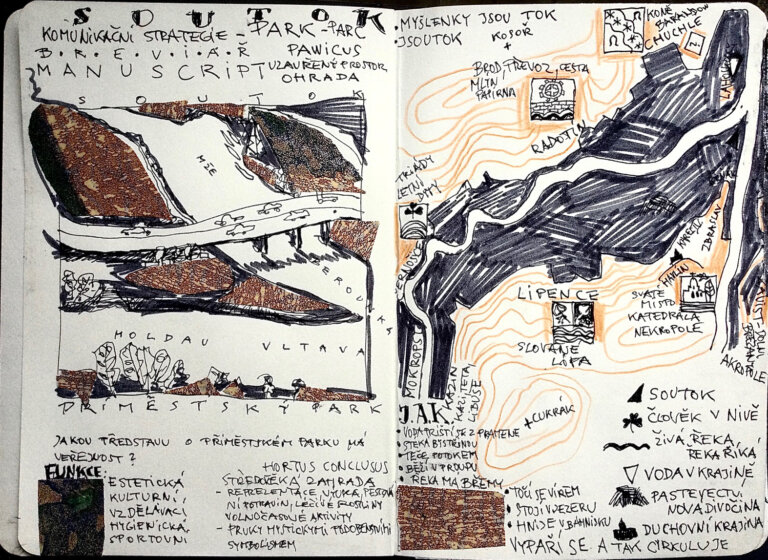 SOUTOK
KOMUNIKAČNÍ STRATEGIE - PARK - PARC
B·R·E·V·I·Á·Ř PAWICUS
MANUSCRIPT UZAVŘENÝ PROSTOR
OHRADA
SOUTOK
MŽE
BEROUNKA
MOLDAU VLTAVA
PŘÍMĚSTSKÝ PARK
JAKOU PŘEDSTAVU O PŘÍMĚSTSKÉM PARKU MÁ
VEŘEJNOST?
FUNKCE:
ESTETICKÁ
KULTURNÍ
VZDĚLÁVACÍ
HYGIENICKÁ
SPORTOVNÍ
HORTUS CONCLUSUS
STŘEDOVĚKÁ ZAHRADA
- REPREZENTACE, VÝUKA, PĚSTOVÁ
NÍ POTRAVIN, LÉČIVÉ ROSTLINY
VOLNOČASOVÉ AKTIVITY
- PRVKY MYSTICKÝMI PODOBENSTVÍMI
SYMBOLISMEM
• MYŠLENKY JSOU TOK
• JSOUTOK
KOSOŘ
+
KONĚ
BARRANDOV
CHUCHLE
LAHOVICE
BROD, PŘEVOZ, CESTA
MLÝN
PAPÍRNA
RADOTÍN
TRIÁDY
LETNÍ
BYTY
ČERNOŠICE
MOKROPSY
KAZÍN
KAZI, TETA
LIBUŠE
LIPENCE
SLOVANÉ
LÍPA
ZBRASLAV
HAVLÍN
SVATÉ
MÍSTO
KATEDRÁLA
NEKROPOLE
AKROPOLE
+ CUKRÁK
J.A.K.
• VODA PRÝŠTÍ SE Z PRAMENE
• STÉKÁ BYSTŘINOU
• TEČE POTOKEM
• BĚŽÍ V PROUPU
• ŘEKA MÁ BŘEMY
• TOČÍ SE VÍREM
• STOJÍ V JEZERU
• HNIJE V BAHNISKU
VYPAŘÍ SE A TAK CIRKULUJE
SOUTOK
ČLOVĚK V NIVĚ
ŽIVÁ ŘEKA,
ŘEKA ŘÍKÁ
VODA V KRAJINĚ
PASTEVECTVÍ
NOVÁ DIVOČINA
DUCHOVNÍ KRAJINA